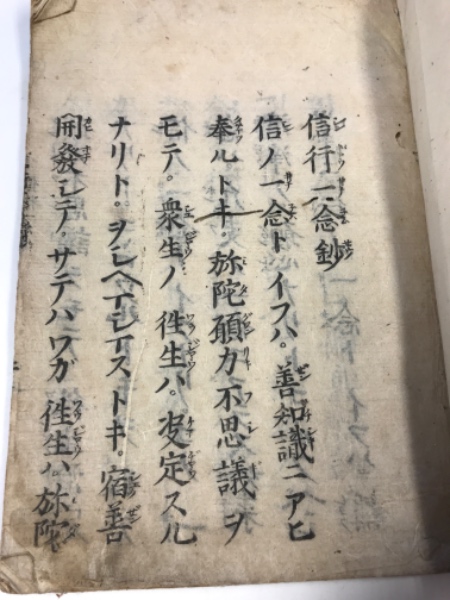 信行一念鈔
信ノ一念トイフハ。善知識ニアヒ
奉ルトキ。弥陀願力不思議ヲ
モテ。衆生ノ徃生ハ。决定スル
ナリト。ヲシヘマシマストキ。宿善
開發シテ。サテハワカ徃生ハ弥陀